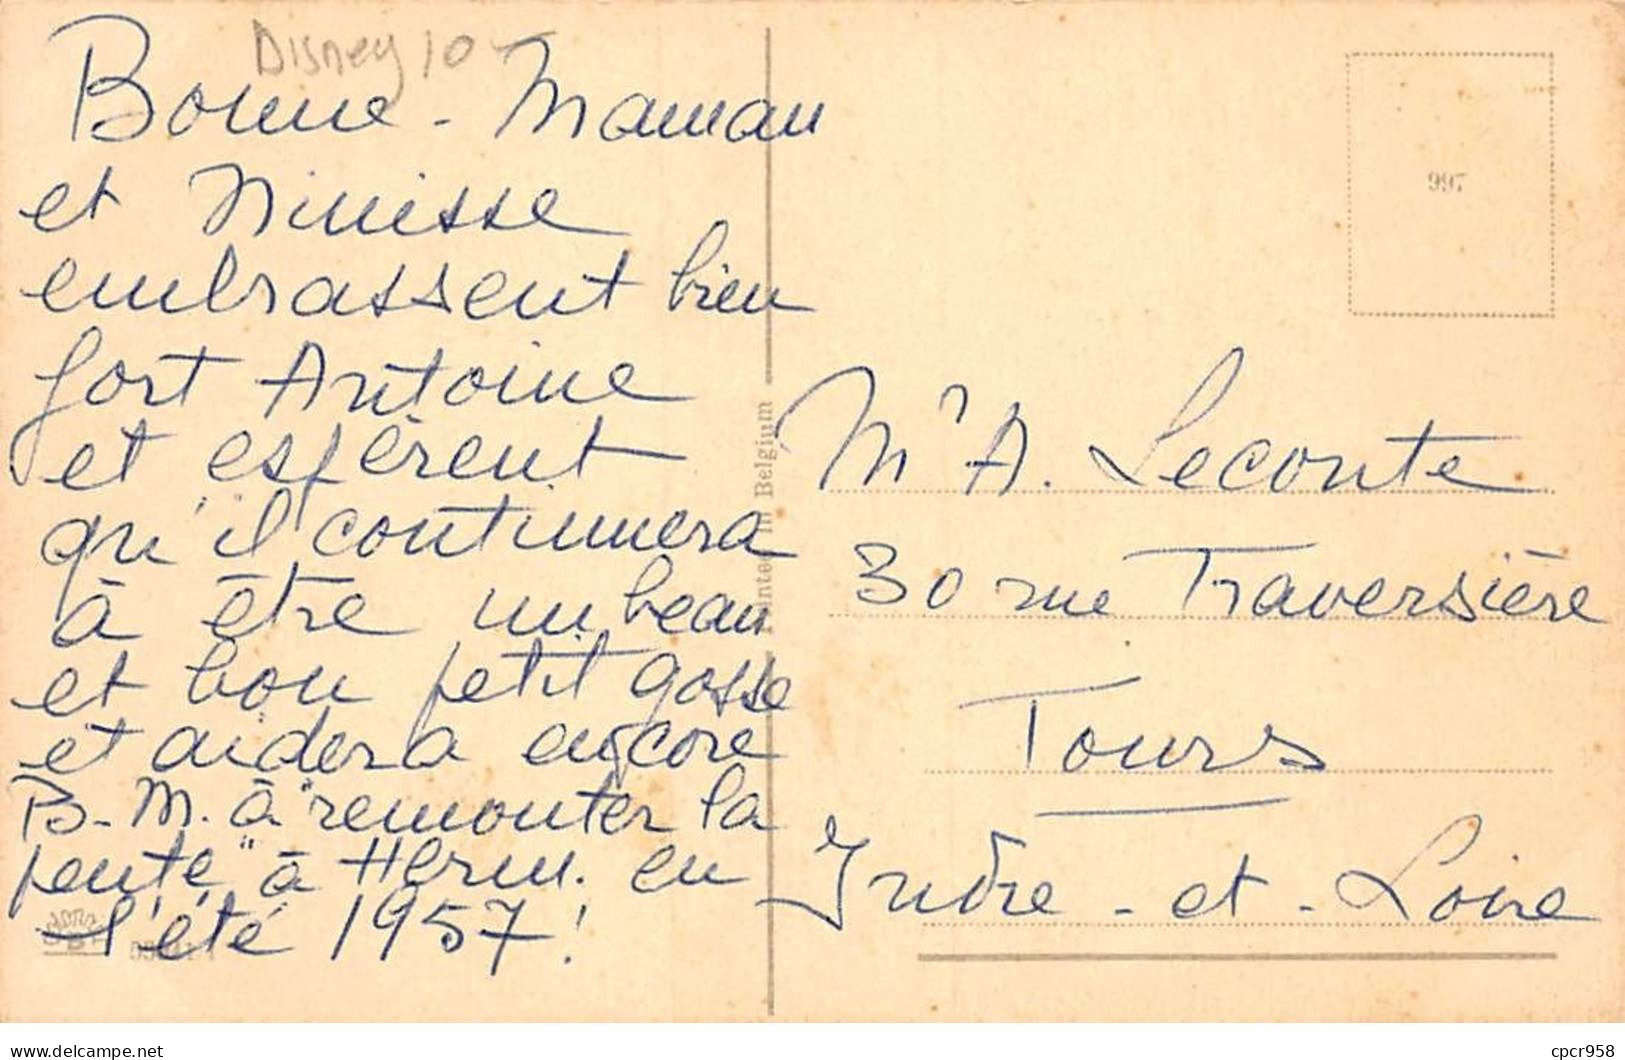 Disney 10
Bonne-Maman
et Ninisse
embrassent bien
fort Antoine
et espèrent
qu'il continuera
à être un beau
et bon petit gosse
et aidera encore
B-M. à "remonter la
pente" à Herm. en
l'été 1957!
Printed in Belgium
997
Mr A. Leconte
30 rue Traversière
Tours
Indre-et-Loire
delcampe.net
cpcr958